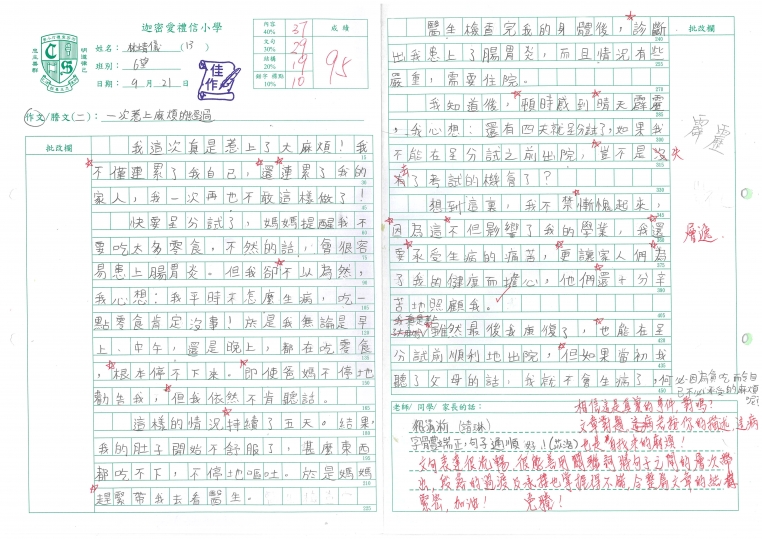 迦密愛禮信小學
姓名：
(13)
班別：6望
日期：9月21日
明道律己
忠主善群
佳作
內容 40% 37
文句 30% 29
結構 20% 19
錯字 標點 10% 10
成績
95
作文/謄文(二)：一次惹上麻煩的經過
批改欄
我這次真是惹上了大麻煩！我
不僅連累了我自己，還連累了我的
家人，我一次再也不敢這樣做了！
快要呈分試了，媽媽提醒我不
要吃太多零食，不然的話，會很容
易患上腸胃炎。但我卻不以為然，
我心想：我平時不怎麼生病，吃一
點零食肯定沒事！於是我無論是早
上、中午，還是晚上，都在吃零食
，根本停不下來。即使爸媽不停地
勸告我，但我依然不肯聽話。
這樣的情況持續了五天。結果，
我的肚子開始不舒服了，甚麼東西
都吃不下，不停地嘔吐。於是媽媽
趕緊帶我去看醫生。
批改欄
醫生檢查完我的身體後，診斷
出我患上了腸胃炎，而且情況有些
嚴重，需要住院。
我知道後，頓時感到晴天霹靂
，我心想：還有四天就呈分試了，如果我
不能在呈分試之前出院，豈不是沒失
有了考試的機會了？
霹靂
想到這裏，我不禁慚愧起來，
因為這不但影響了我的學業，我還
要承受生病的痛苦，更讓家人們為
了我的健康而擔心，他們還十分辛
苦地照顧我。
層遞
雖然最後我康復了，也能在呈
分試前順利地出院，但如果當初我
聽了父母的話，我就不會生病了，何
必因為貪吃而令自
己
老師/ 同學/ 家長的話：
相信這是真實的事件，對嗎？
字體端正，句子通順，好！
文句表達很流暢，
緊密，加油！